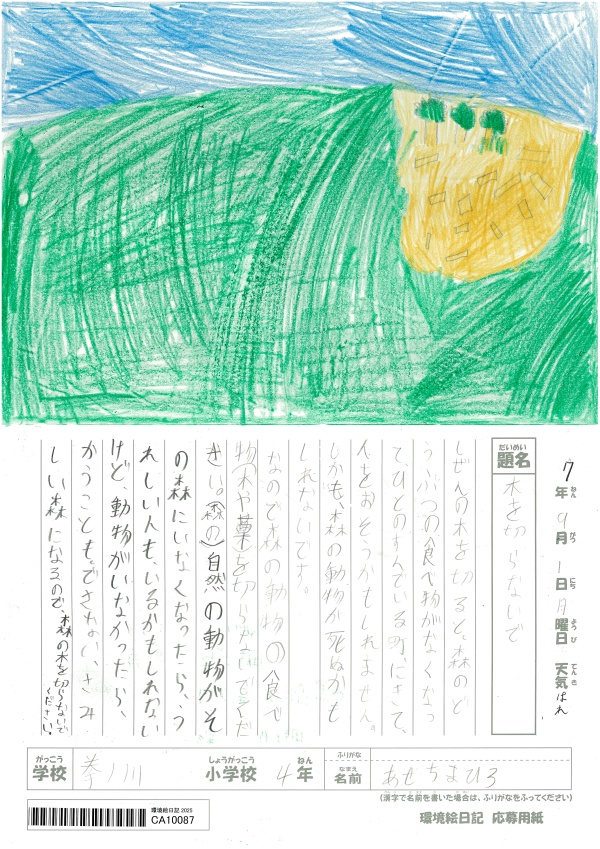 7年9月1日月曜日 天気はれ
ねん がつ にち ようび てんき
だいめい
題名
木を切らないで
しぜんの木を切ると、森のど
うぶつの食べ物がなくなっ
て、ひとのすんでいる町にきて、
人をおそうかもしれません。
しかも、森の動物が死ぬかも
しれないです。
なので森の動物の食べ
物(木や葉)を切らないでくだ
さい。(森の)自然の動物がそ
の森にいなくなったら、う
れしい人も、いるかもしれない
けど、動物がいなかったら、
かうことも。できない、さみ
しい森になるので、森の木を切らないで
ください。
がっこう
学校
拳ノ川
しょうがっこう
小学校
4年
ねん
ふりがな
なまえ
名前
あせちまひろ
(漢字で名前を書いた場合は、ふりがなをふってください)
環境絵日記 2025
CA10087
環境絵日記 応募用紙